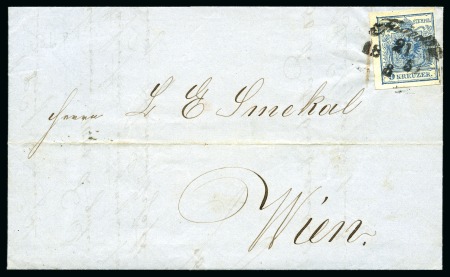 KREUZER.
Herrn L E Smekal
Wien.